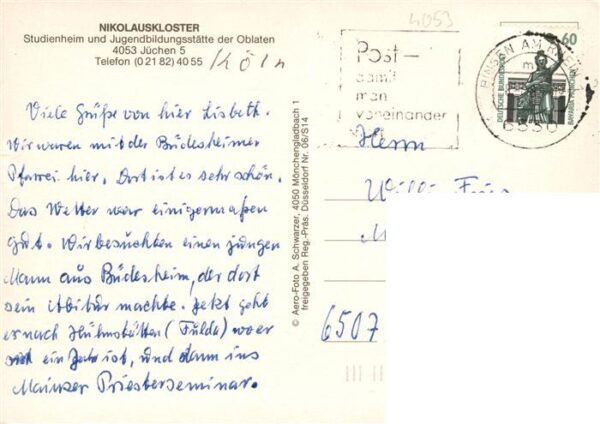 NIKOLAUSKLOSTER
Studienheim und Jugendbildungsstätte der Oblaten
4053 Jüchen 5
Telefon (0 21 82) 40 55
Köln
4053
Viele Grüße von hier Lisbeth.
Wir waren mit der Büdesheimer
Pfarrei hier. Dort ist es sehr schön.
Das Wetter war einigermaßen
gut. Wir besuchten einen jungen
Mann aus Büdesheim, der dort
sein Abitur machte. Jetzt geht
er nach (Fulda) wo er
ein Jahr ist, und dann ins
Mainzer Priesterseminar.
© Aero-Foto A. Schwarzer, 4050 Mönchengladbach 1
freigegeben Reg.-Präs. Düsseldorf Nr. 06/S14
Post –
damit
man
voneinander
BINGEN AM RHEIN 1
6530
60
DEUTSCHE BUNDESPOST
BAVARIA MÜNCHEN
Herrn
Willi
6507